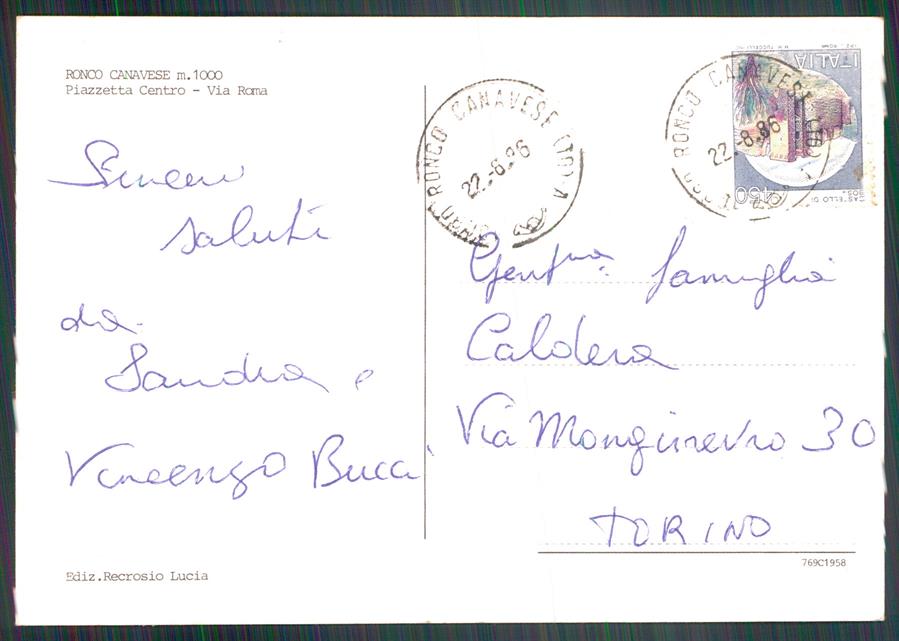 RONCO CANAVESE m.1000
Piazzetta Centro - Via Roma
Sinceri
saluti
da
Sandra e
Vincenzo Bucci
Ediz.Recrosio Lucia
RONCO CANAVESE (TO) A
22.-8.86
RONCO CANAVESE (TO)
22.-8.86
I.P.Z.S. ROMA
ITALIA
CASTELLO DI
450
Gent.ma famiglia
Caldera
Via Monginevro 30
TORINO
769C1958